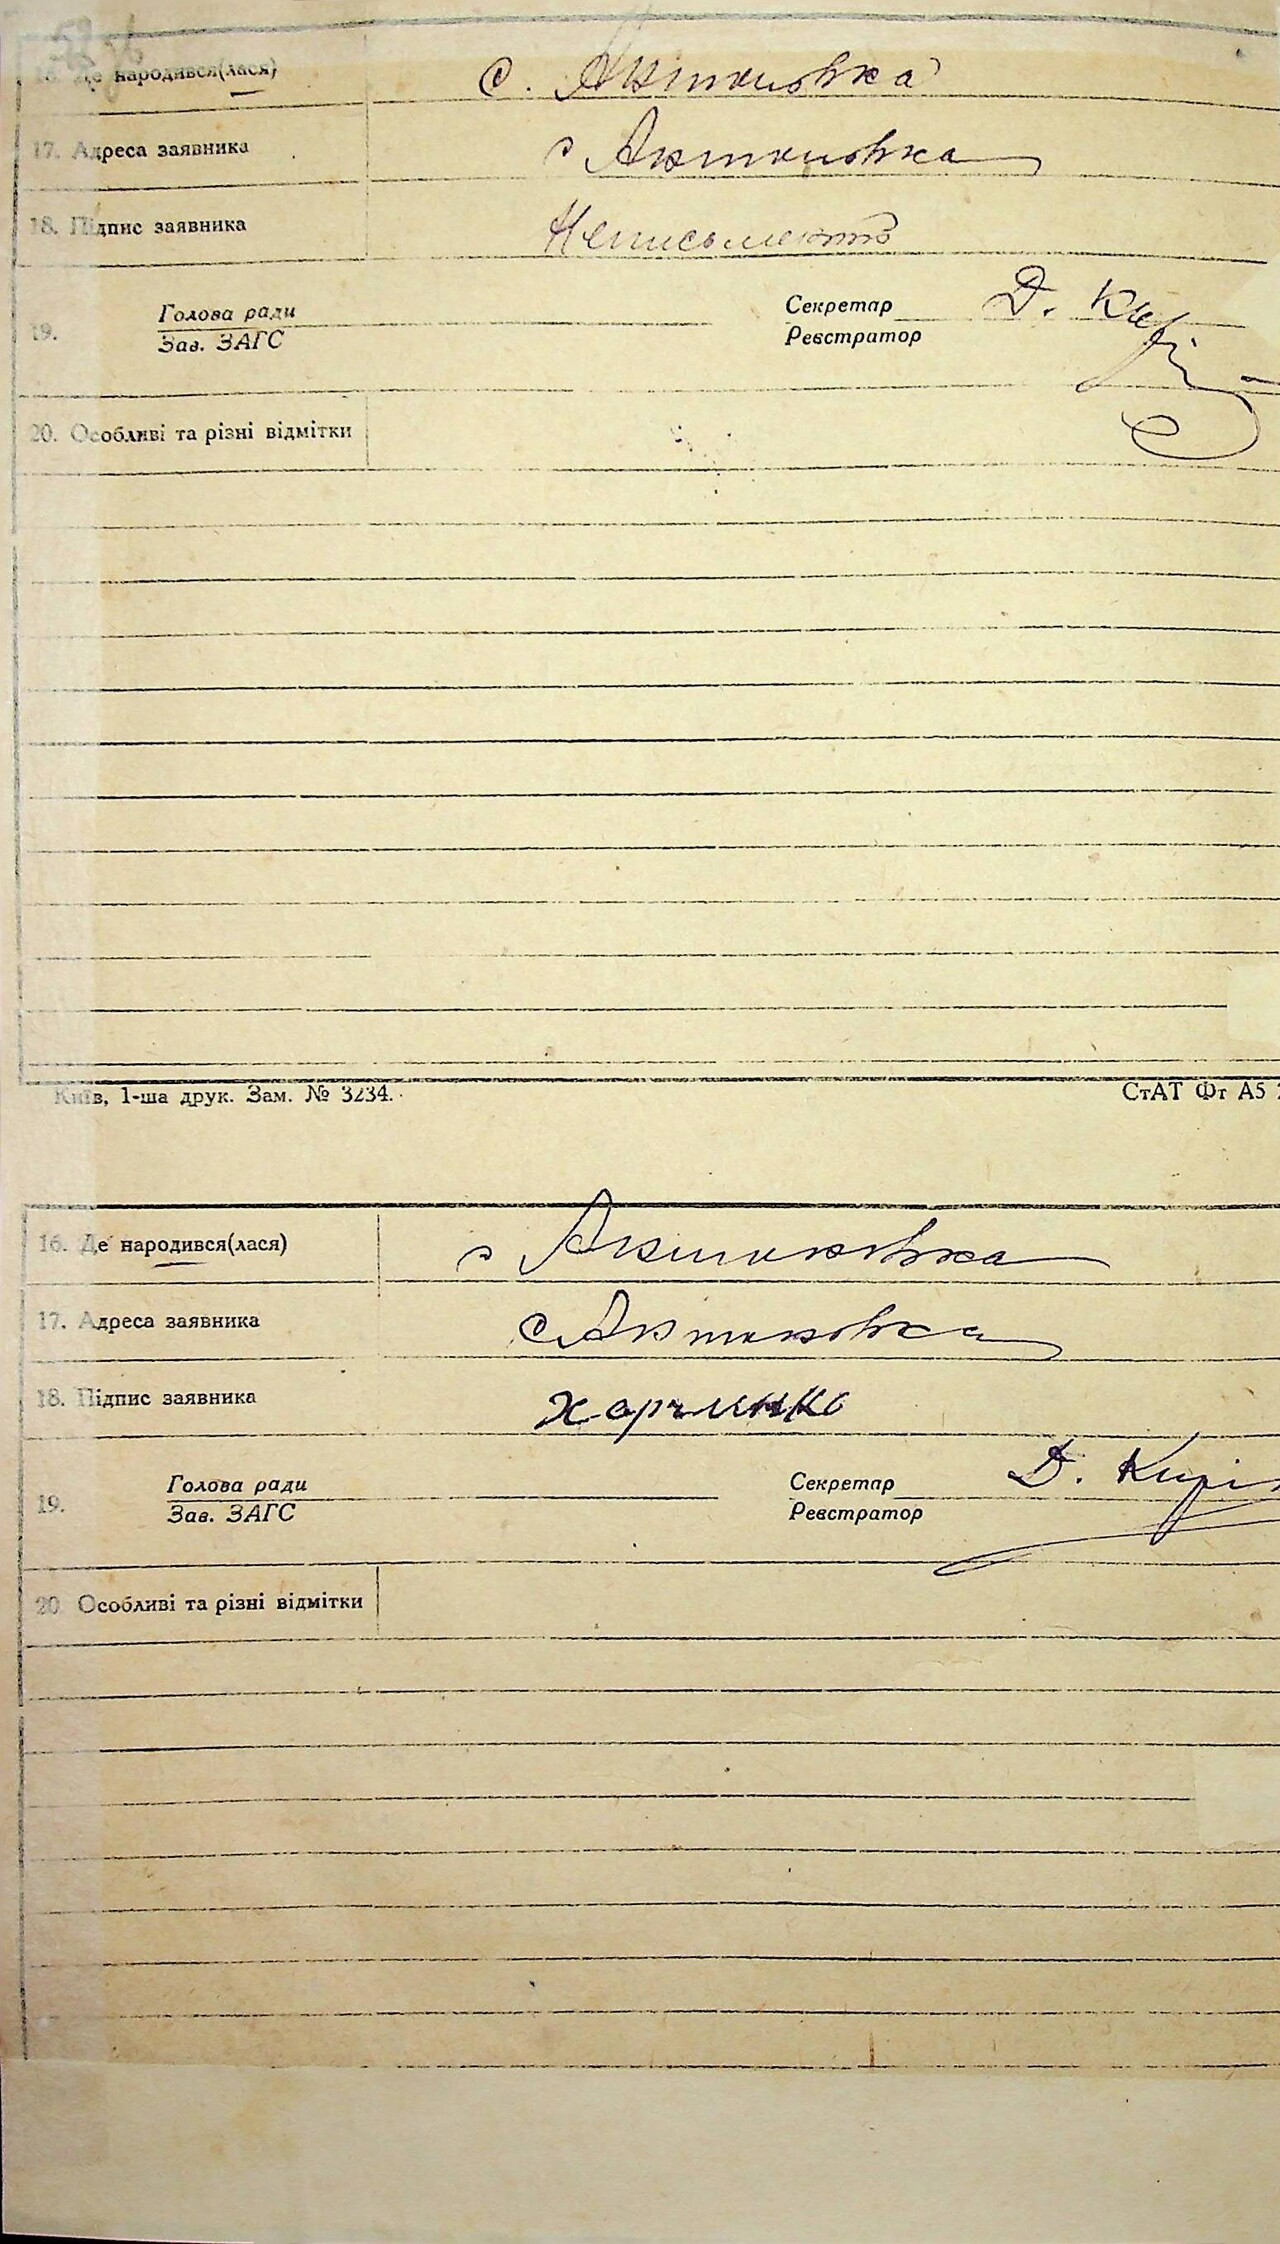 16. Де народився(лася) с. Антоновка
17. Адреса заявника с Антоновка
18. Підпис заявника
19. Голова ради Секретар Д.
Зав. ЗАГС Реєстратор
20. Особливі та різні відмітки
Київ, 1-ша друк. Зам. № 3234.
СтАТ Фт А5
16. Де народився(лася) с Антоновка
17. Адреса заявника с Антоновка
18. Підпис заявника Харченко
19. Голова ради Секретар Д.
Зав. ЗАГС Реєстратор
20. Особливі та різні відмітки